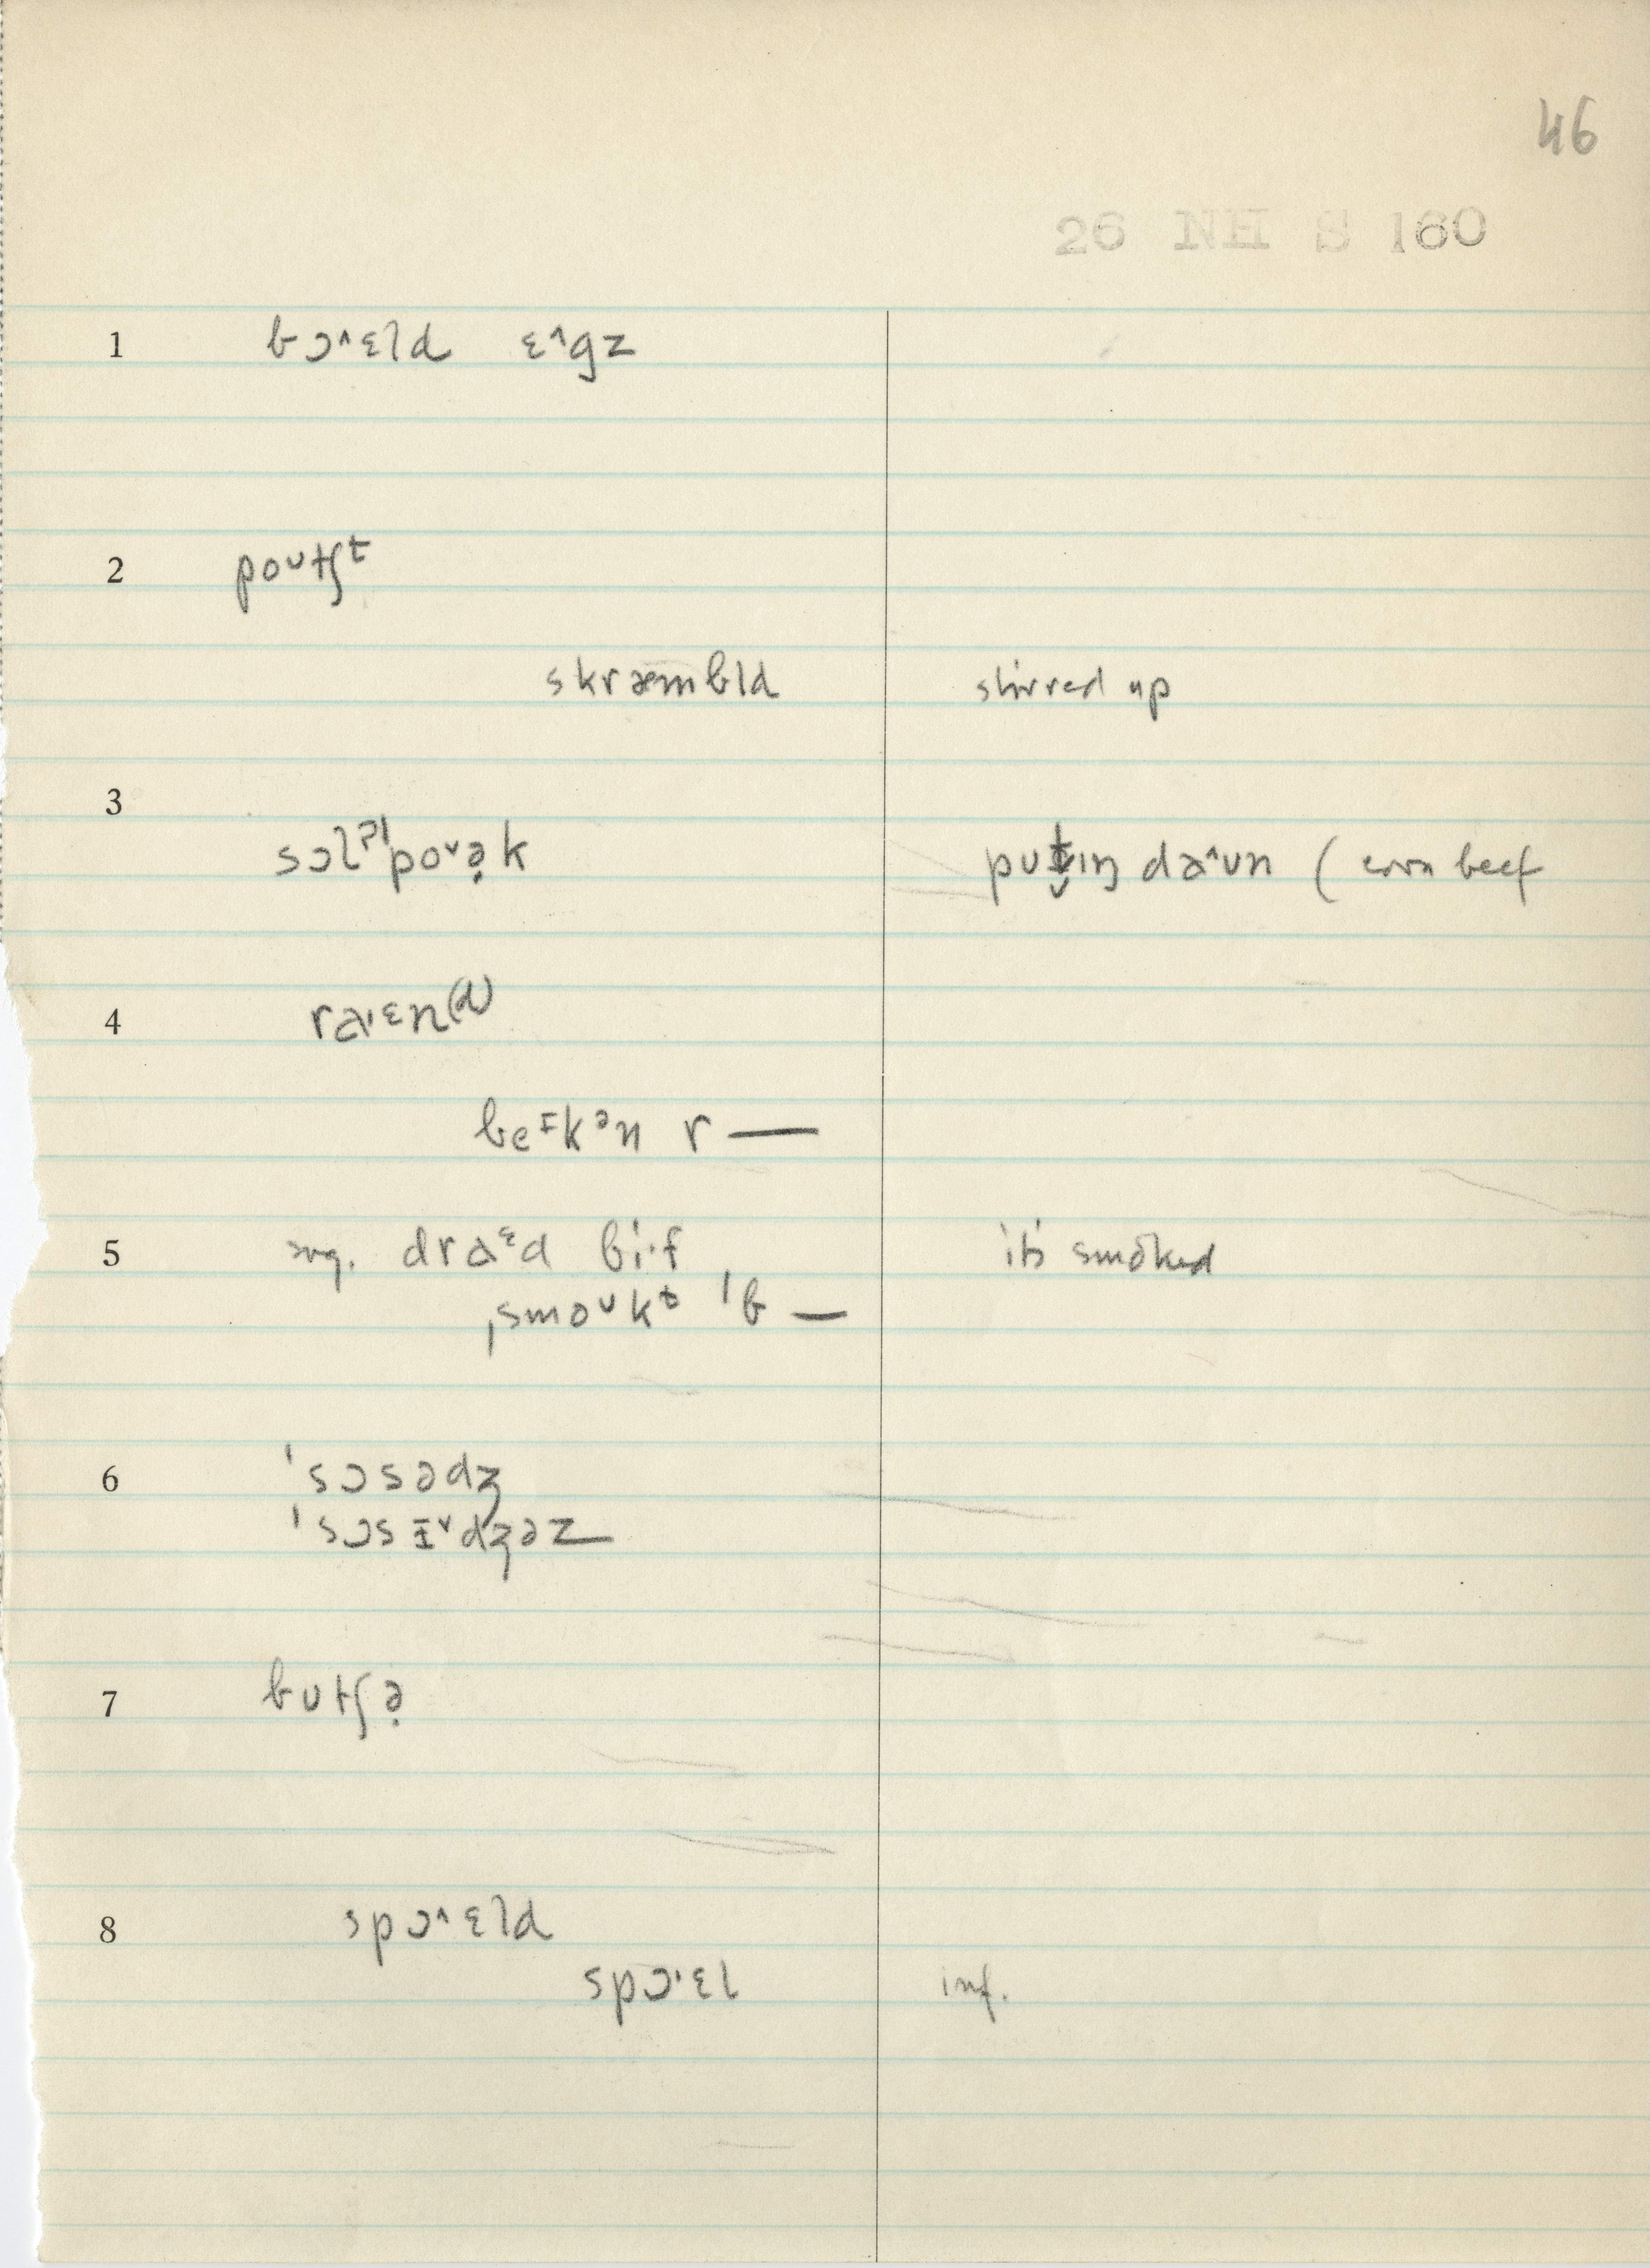 46
26 NH S 160
1 bɔ˄ɛld ɛ˄gz
2 poᴜtʃᵗ
skræmbld stirred up
3
sɔlˀˈpo˅ə̣k pʊt̬ɪŋ da˄ʊn ( corn beef
4 ra·ᵋn⁽ᵈ⁾
beᶦkᵊn r —
5 sug. draᵋd bi·f it's smoked
ˌsmoᶷkᵗ ˈb —
6 ˈsɔsədʒ
ˈsɔsɪ˅dʒəz
7 bʊtʃə̣
8 spɔ˄ɛld
spɔ·ɛl inf.